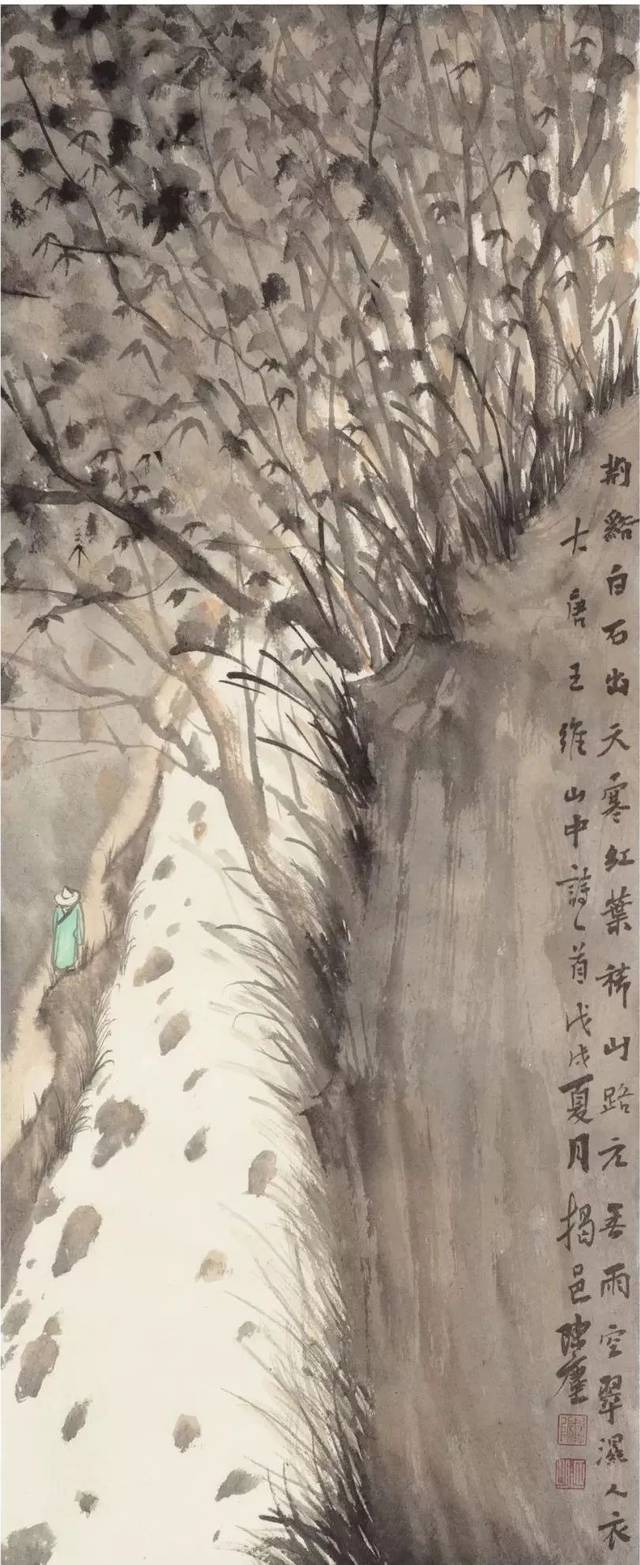 荆谿白石出天寒紅葉稀山路元無雨空翠濕人衣
大唐王維山中詩一首戊戌夏月揭邑陳